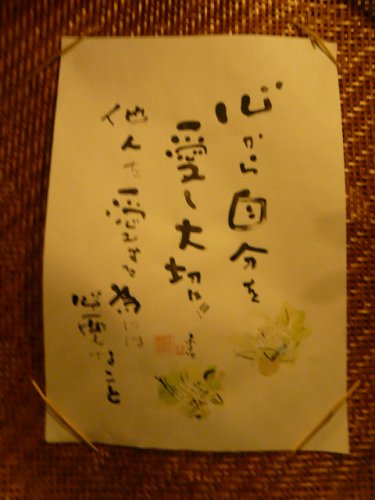 心から自分を
愛し大切に
他人を愛する為には
必要なこと